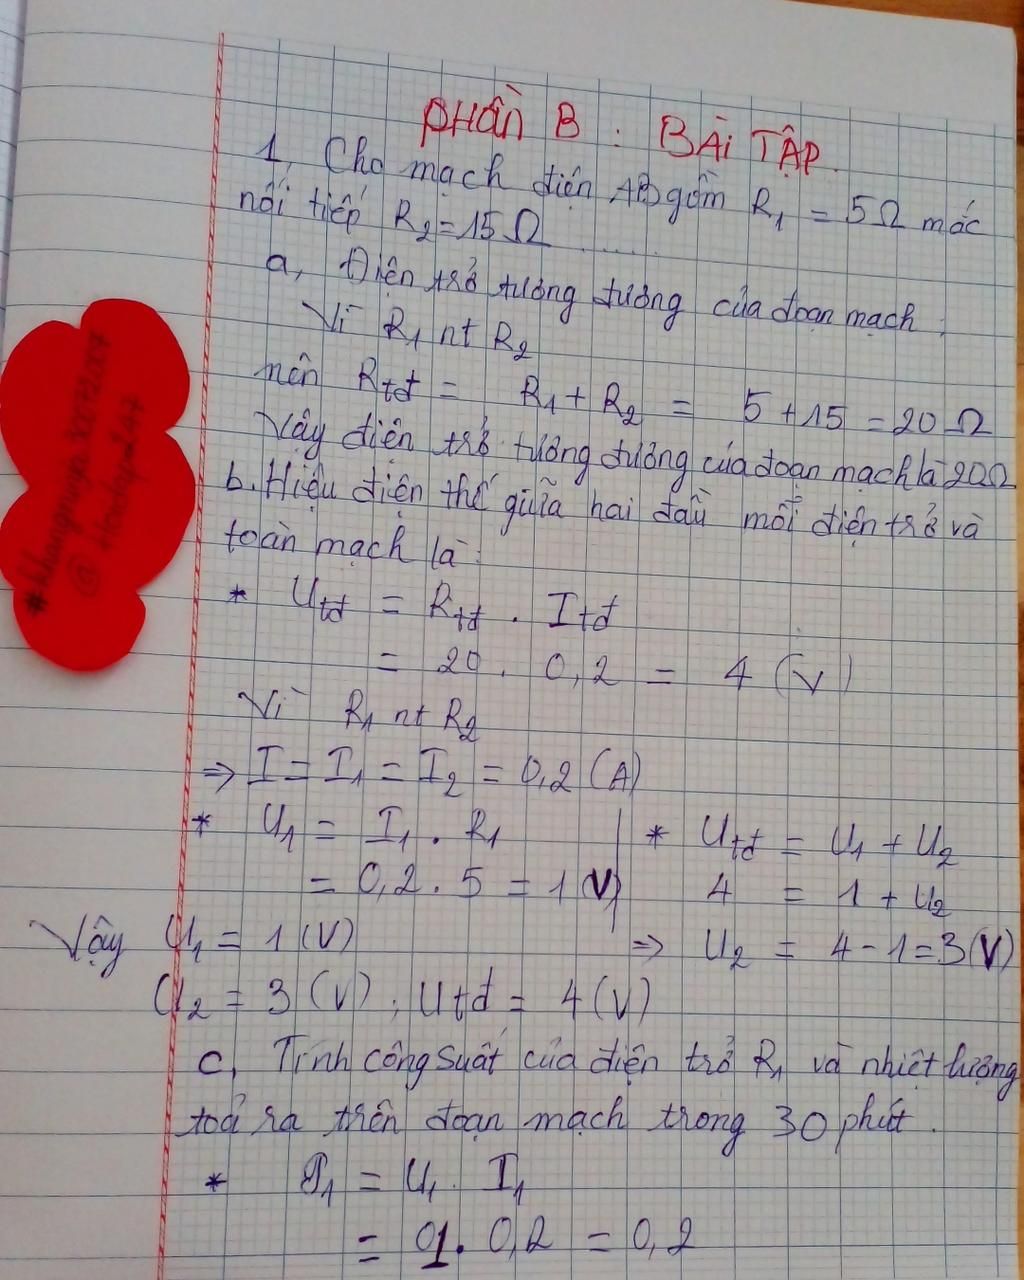 PHẦN B : BÀI TẬP
1, Cho mạch điện AB gồm R1 = 5Ω mắc
nối tiếp R2 = 15Ω ........
a, Điện trở tương đương của đoạn mạch:
Vì R1 nt R2
nên Rtđ = R1 + R2 = 5 + 15 = 20 Ω
Vậy điện trở tương đương của đoạn mạch là 20Ω
b. Hiệu điện thế giữa hai đầu mỗi điện trở và
toàn mạch là:
* Utđ = Rtđ . Itđ
= 20 . 0,2 = 4 (V)
Vì R1 nt R2
⇒ I = I1 = I2 = 0,2 (A)
* U1 = I1 . R1
= 0,2 . 5 = 1 (V)
* Utđ = U1 + U2
4 = 1 + U2
⇒ U2 = 4 - 1 = 3 (V)
Vậy U1 = 1 (V)
U2 = 3 (V) ; Utđ = 4 (V)
c, Tính công suất của điện trở R1 và nhiệt lượng
toả ra trên đoạn mạch trong 30 phút.
* P1 = U1 . I1
= 01 . 0,2 = 0,2